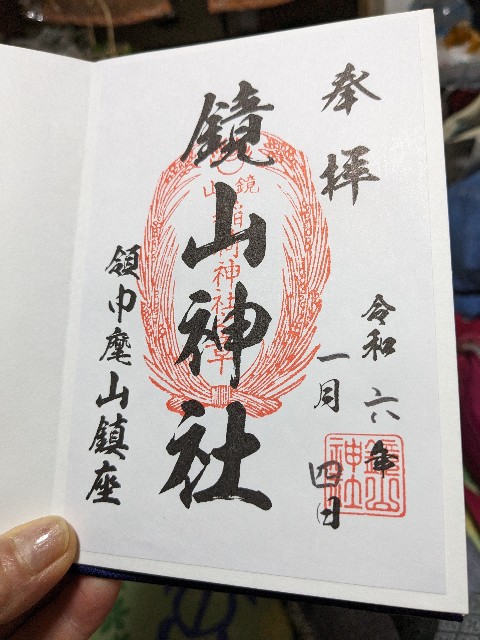 奉拝
令和六年
一月四日
鏡山神社
領巾麾山鎮座
鏡山神社